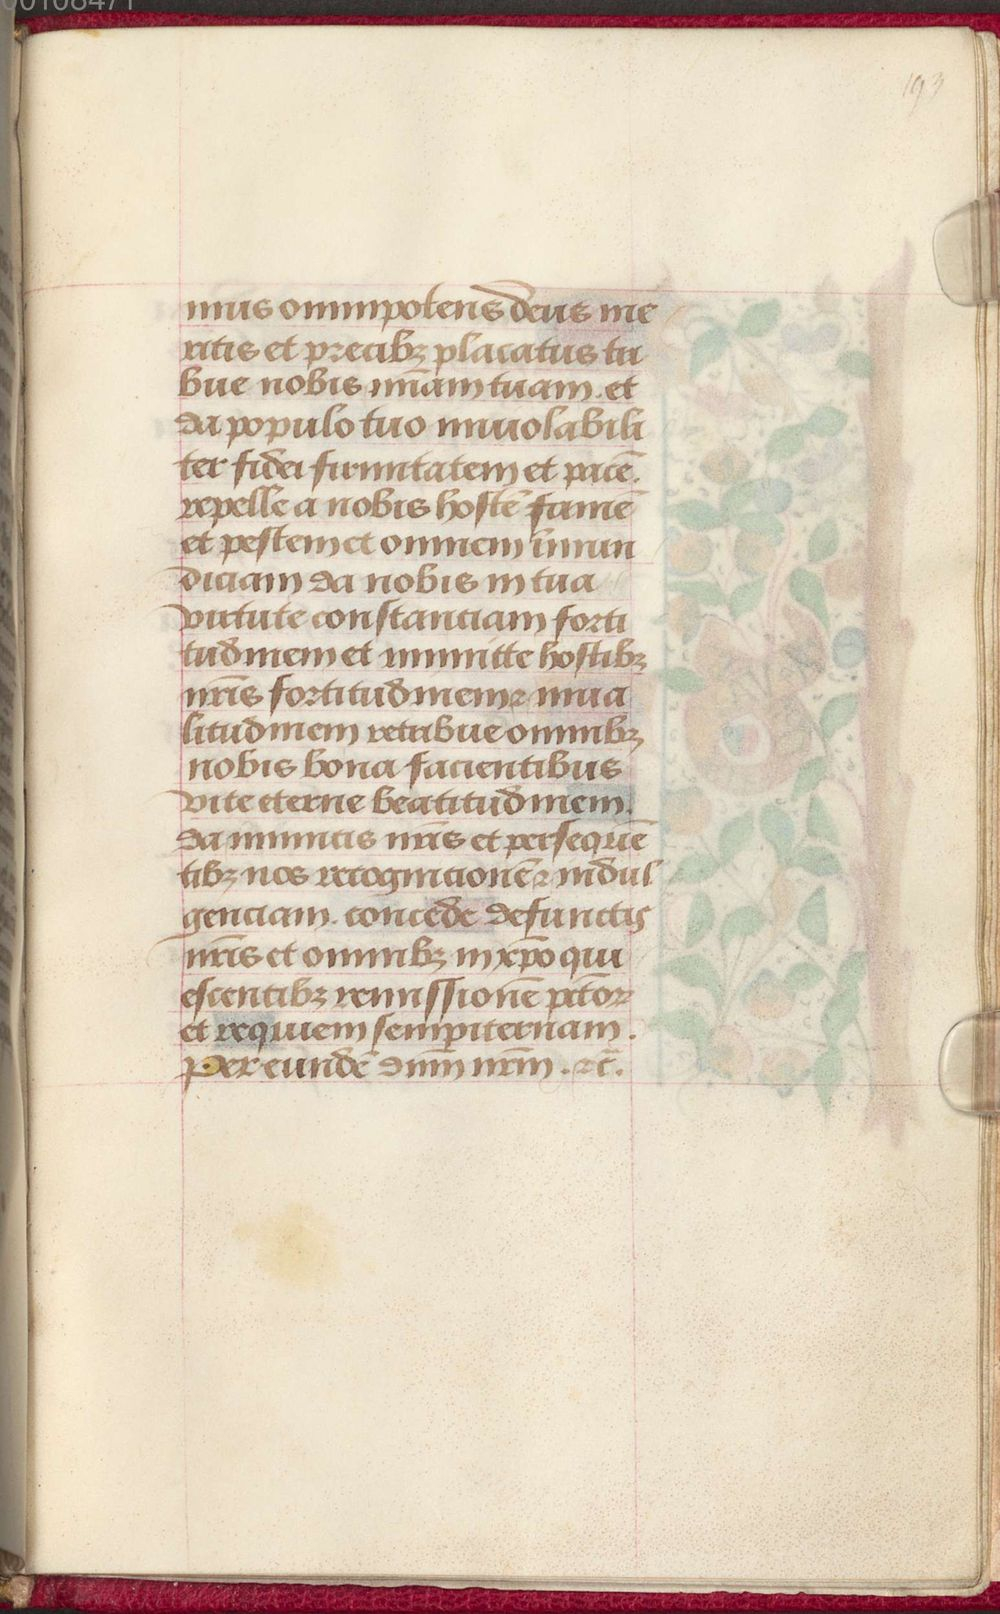 00108471
193
mus omnipotens deus me
ritis et precibꝫ placatus tri
bue nobis mīam tuam. et
da populo tuo inuiolabili
ter fidei firmitatem et pacē.
repelle a nobis hostē famē
et pestem et omnem īmun
diciam da nobis in tua
virtute constanciam forti
tudinem et inmitte hostibꝫ
nr̄is fortitudinemꝛ inua
litudinem retribue omnibꝫ
nobis bona facientibus
vite eterne beatitudinem.
da inimicis nr̄is et persequē
tibꝫ nos recognicionēꝛ indul
genciam. concede defunctis
nr̄is et omnibꝫ in xp̄o qui
escentibꝫ remissionē pc̄toꝝ
et requiem sempiternam.
Per eundē dnm̄ nrm̄. ⁊c̄.